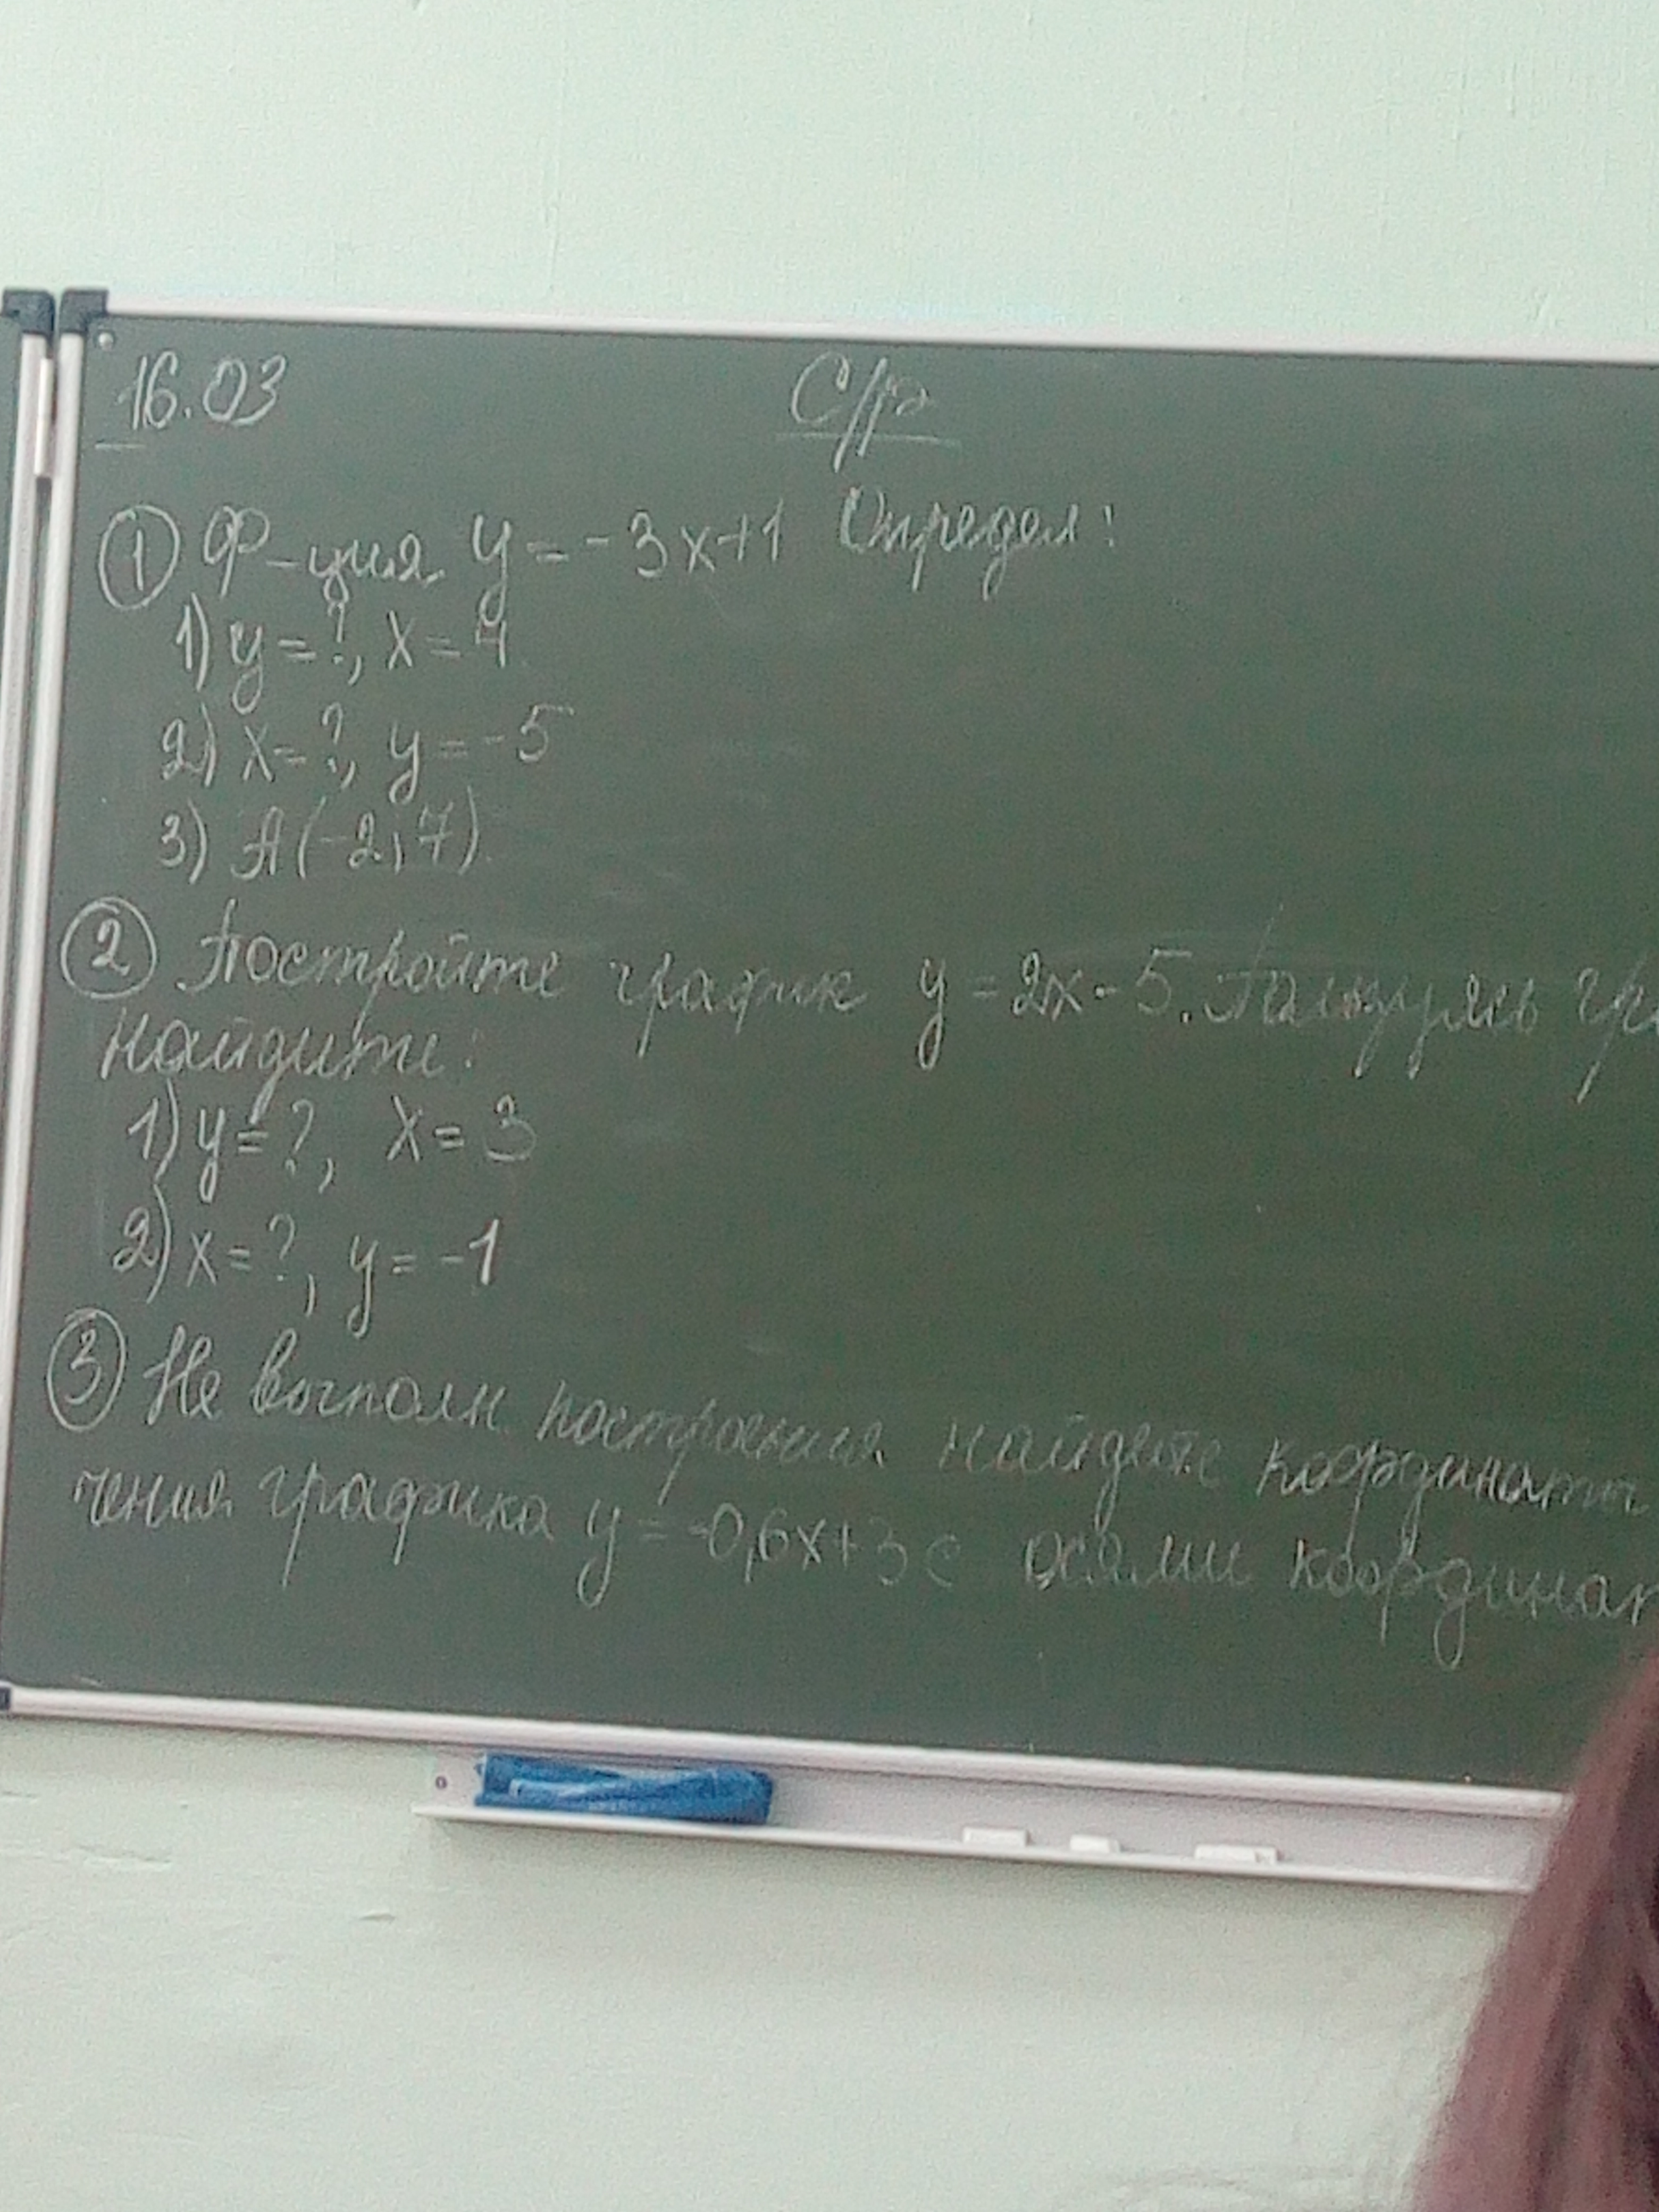 16.03 С/р
① Ф-ция y = -3x+1 Определ:
1) y = ?, x = 4
2) x = ?, y = -5
3) A(-2; 7).
② Постройте график y = 2x - 5. Пользуясь гра
найдите:
1) y = ?, x = 3
2) x = ?, y = -1
③ Не выполн. построения найдите координаты
чения графика y = -0,6x+3 с осями координат